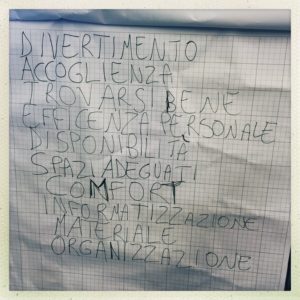 DIVERTIMENTO
ACCOGLIENZA
TROVARSI BENE
EFFICENZA PERSONALE
DISPONIBILITÀ
SPAZI ADEGUATI
COMFORT
INFORMATIZZAZIONE
MATERIALE
ORGANIZZAZIONE